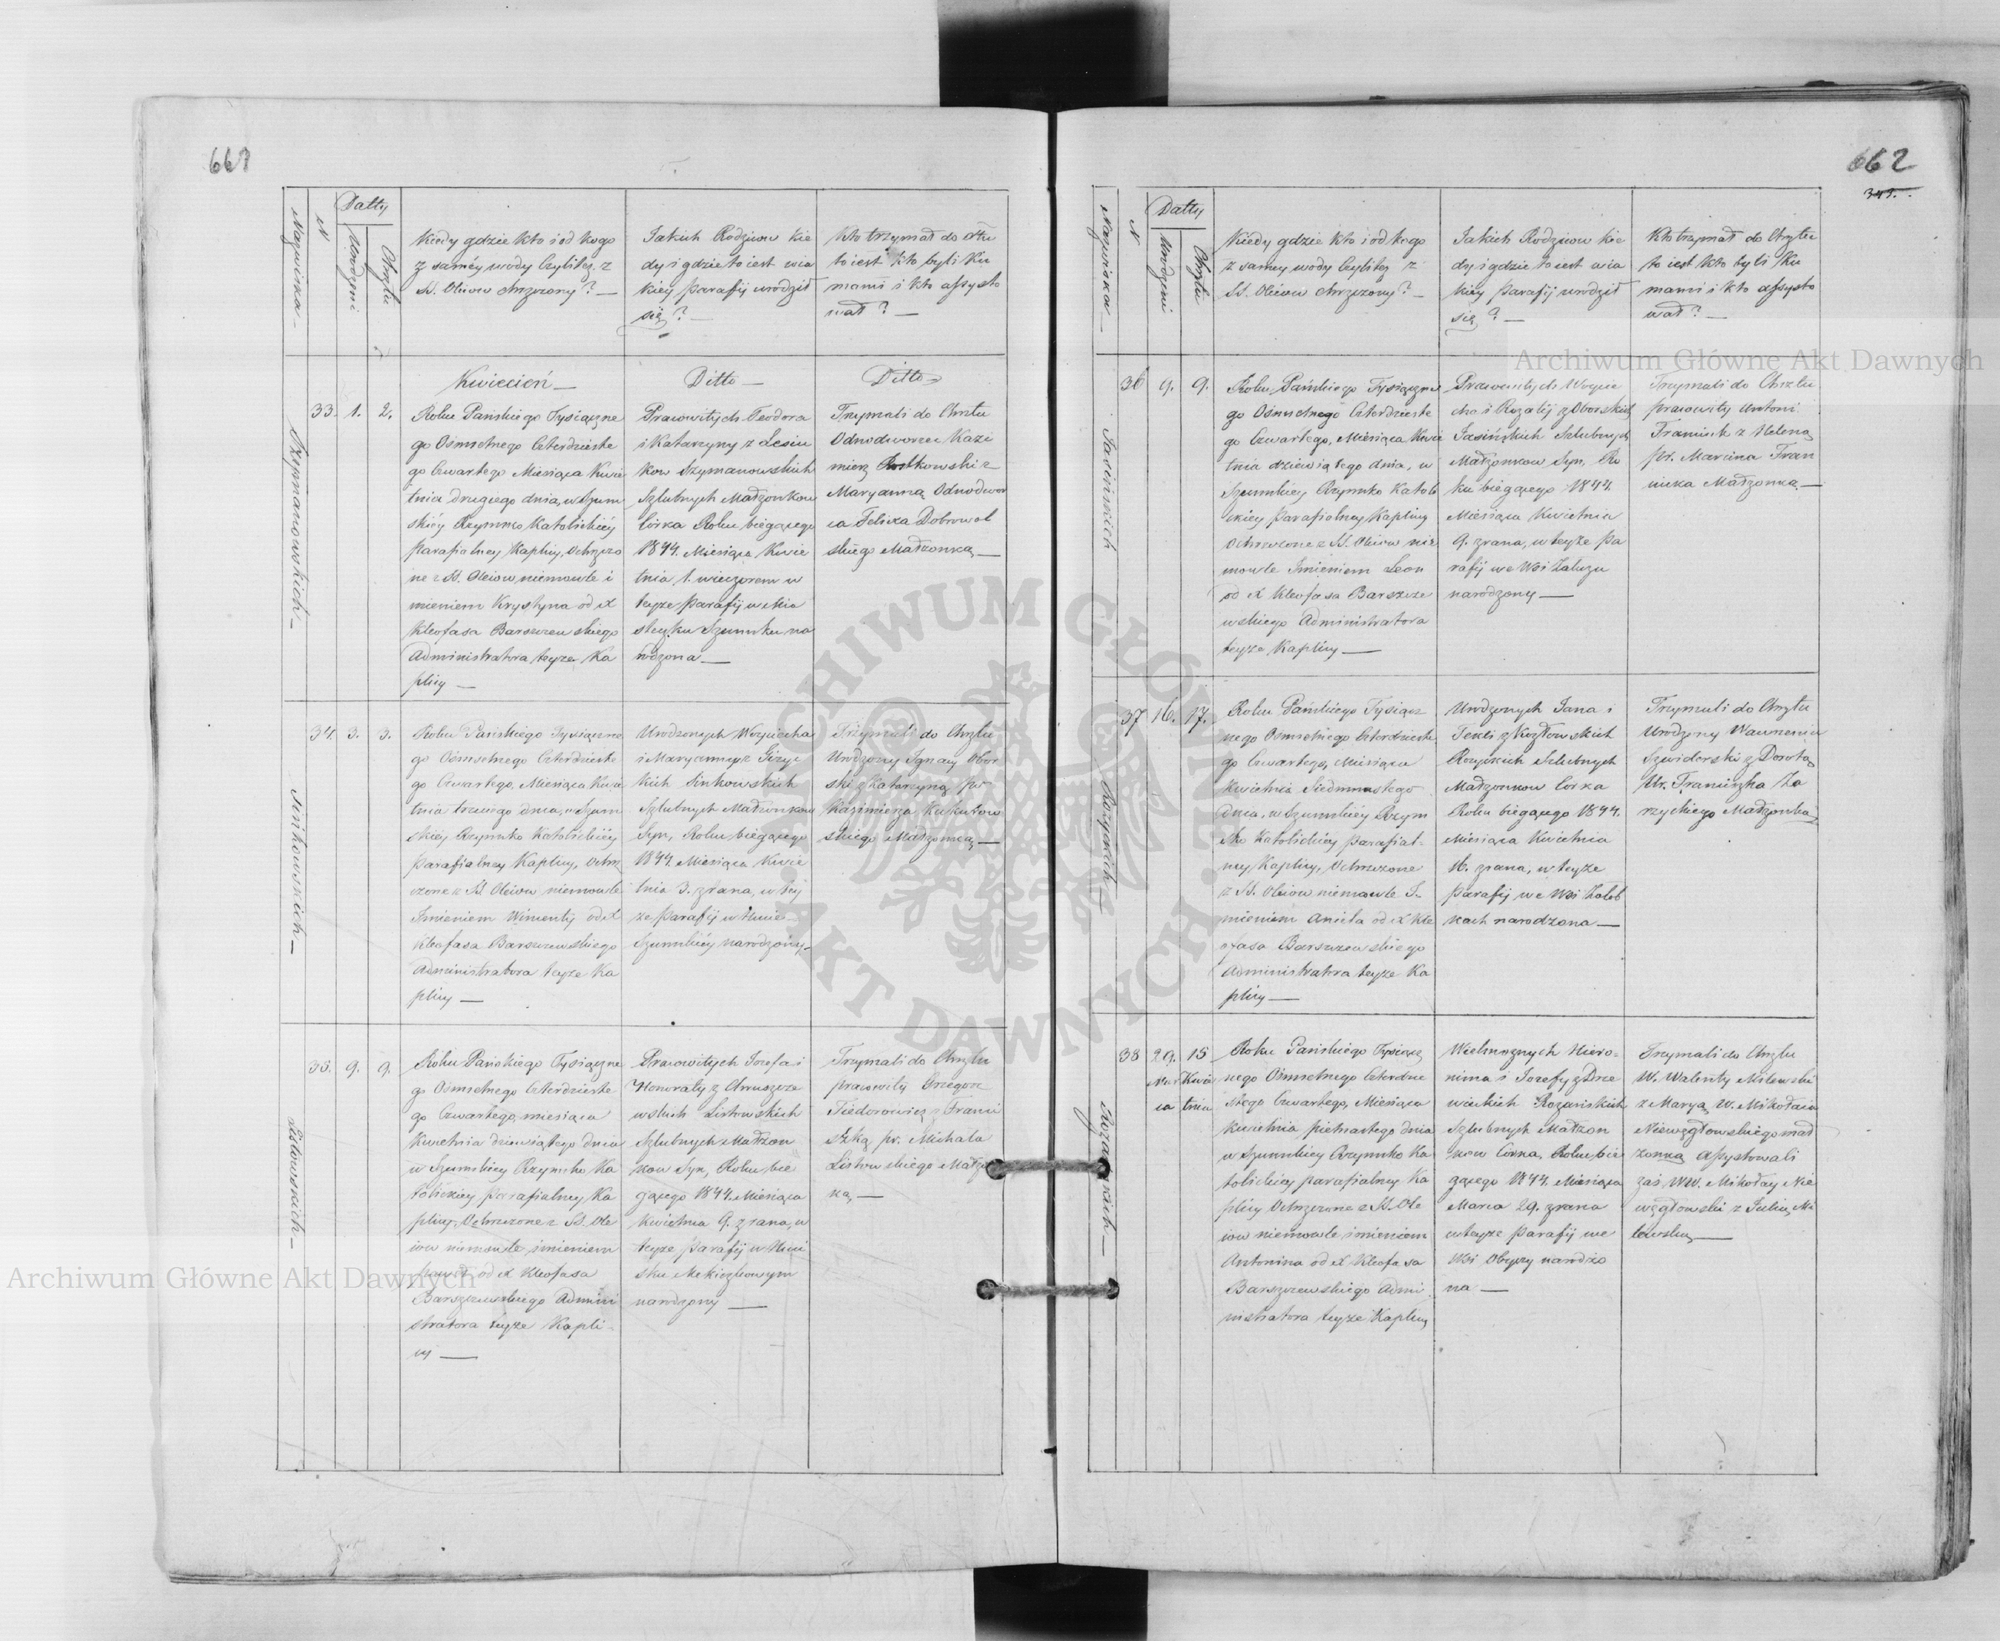 661
Nazwiska
N
Datty
Urodzeni
Chrztu
Kiedy gdzie Kto i od kogo
z saméy wody czyliteż z
SS. Oleiow chrzczony? —
Jakich Rodziców kie
dy i gdzie to iest w ia
kiéy Parafij urodził
się? —
Kto trzymał do chrz
to iest kto byli Ku
mami i kto assysto
wał? —
Kwiecień —
Ditto —
Ditto
Szymanowskich —
33. 1. 2.
Roku Pańskiego Tysiączne
go Ośmsetnego Czterdzieste
go Czwartego Miesiąca Kwie
tnia drugiego dnia, w Szum
skiéy Rzymsko Katolickiéy
Parafialney Kaplicy, Ochrzczo
ne z SS. Oleiow niemowle i
mieniem Krystyna od X
Kleofasa Barszczewskiego
Administratora teyże Ka
plicy —
Pracowitych Teodora
i Katarzyny z Lesiu
kow Szymanowskich
Szlubnych Małżonkow
Córka Roku bieżącego
1844. Miesiąca Kwie
tnia 1. wieczorem w
teyże Parafij w Mia
steczku Szumsku na
rodzona —
Trzymali do Chrztu
Odnodworzec Kazi
mierz Rostkowski z
Maryanną Odnodwor
ca Felixa Dobrowol
skiego Małżonką —
Sińkowskich —
34. 3. 3.
Roku Pańskiego Tysiączne
go Ośmsetnego Czterdzieste
go Czwartego, Miesiąca Kwie
tnia trzeciego dnia, w Szum
skiéy Rzymsko Katolickiéy
Parafialney Kaplicy, Ochrz
czone z SS. Oleiow niemowle
Imieniem Wincenty od X
Kleofasa Barszczewskiego
Administratora teyże Ka
plicy —
Urodzonych Woyciecha
i Maryanny z Giżyc
kich Sinkowskich
Szlubnych Małżonkow
Syn, Roku bieżącego
1844. Miesiąca Kwie
tnia 3. zrana, w téy
że Parafij w Hucie
Szumskiéy narodzony —
Trzymali do Chrztu
Urodzony Ignacy Obor
ski z Katarzyną pr.
Kazimierza Kukurow
skiego Małżonką —
Listowskich —
35. 9. 9.
Roku Pańskiego Tysiączne
go Ośmsetnego Czterdzieste
go Czwartego, miesiąca
Kwietnia dziewiątego dnia
w Szumskiey Rzymsko Ka
tolickiey Parafialney Ka
plicy, Ochrzczone z SS. Ole
iow niemowle imieniem
od X Kleofasa
Barszczewskiego Admini
stratora teyże Kapli
cy —
Pracowitych Jozefa i
Honoraty z
wskich Listowskich
Szlubnych Małżon
kow Syn, Roku bie
żącego 1844. Miesiąca
Kwietnia 9. zrana, w
teyże Parafij w Huci
sku
narodzony —
Trzymali do Chrztu
pracowity Grzegorz
Fiedorowicz z Franci
szką pr. Michała
Listowskiego Małżon
ką —
662
349.
Nazwiska —
N
Datty
Urodzeni
Chrztu
Kiedy gdzie Kto i od kogo
z samey wody czyliteż z
SS. Oleiow chrzczony? —
Jakich Rodzicow kie
dy i gdzie to iest w ia
kiéy Parafij urodził
się? —
Kto trzymał do Chrztu
to iest kto byli Ku
mami i kto assysto
wał? —
Jasińskich
36 9. 9.
Roku Pańskiego Tysiączne
go Ośmsetnego Czterdzieste
go Czwartego, Miesiąca Kwie
tnia dziewiątego dnia, w
Szumskiey Rzymsko Katoli
ckiey Parafialney Kaplicy
Ochrzczone z SS. Oleiow nie
mowle Imieniem Leon
od X Kleofasa Barszcze
wskiego Administratora
teyże Kaplicy —
Pracowitych Woycie
cha i Rozalij z Oborskich
Jasińskich Szlubnych
Małżonkow Syn, Ro
ku bieżącego 1844.
Miesiąca Kwietnia
9. zrana, w teyże Pa
rafij we Wsi Załużu
narodzony —
Trzymali do Chrztu
pracowity Antoni
Franiuk z Heleną
pr. Marcina Fran
iuka Małżonką —
37 16. 17.
Roku Pańskiego Tysiącz
nego Ośmsetnego Czterdzieste
go Czwartego, Miesiąca
Kwietnia Siedmnastego
dnia, w Szumskiéy Rzym
sko Katolickiéy Parafial-
ney Kaplicy, Ochrzczone
z SS. Oleiow niemowle I-
mieniem Aniela od X Kle
ofasa Barszczewskiego
Administratora teyże Ka
plicy —
Urodzonych Jana i
Tekli z Kozłowskich
Szlubnych
Małżonkow Córka
Roku bieżącego 1844.
Miesiąca Kwietnia
16. zrana, w teyże
Parafij we Wsi Załob
kach narodzona —
Trzymali do Chrztu
Urodzony Wawrzeniec
Szwiderski z Dorotą
Ur. Franciszka Za
rzyckiego Małżonką
38 29. 15
Mar Kwie
ca tnia
Roku Pańskiego Tysiącz
nego Ośmsetnego Czterdzie
stego Czwartego, Miesiąca
Kwietnia pietnastego dnia
w Szumskiey Rzymsko Ka
tolickiey parafialney Ka
plicy Ochrzczone z SS. Ole
iow niemowle imieniem
Antonina od X Kleofasa
Barszczewskiego Admi
nistratora teyże Kaplicy
Wielmożnych Hiero-
nima i Jozefy z Drze
wieckich Rozańskich
Szlubnych Małżon
kow Córka, Roku bie
żącego 1844. Miesiąca
Marca 29. zrana
w teyże Parafij we
Wsi Obyczy narodzo
na —
Trzymali do Chrztu
W. Walenty Milewski
z Maryą W. Mikołaia
Niewzgłowskiego mał
żonką Assystowali
zaś WW. Mikołay Nie
wzgłowski z Julią Mi
lewską —
Archiwum Główne Akt Dawnych
Archiwum Główne Akt Dawnych
ARCHIWUM GŁÓWNE AKT DAWNYCH